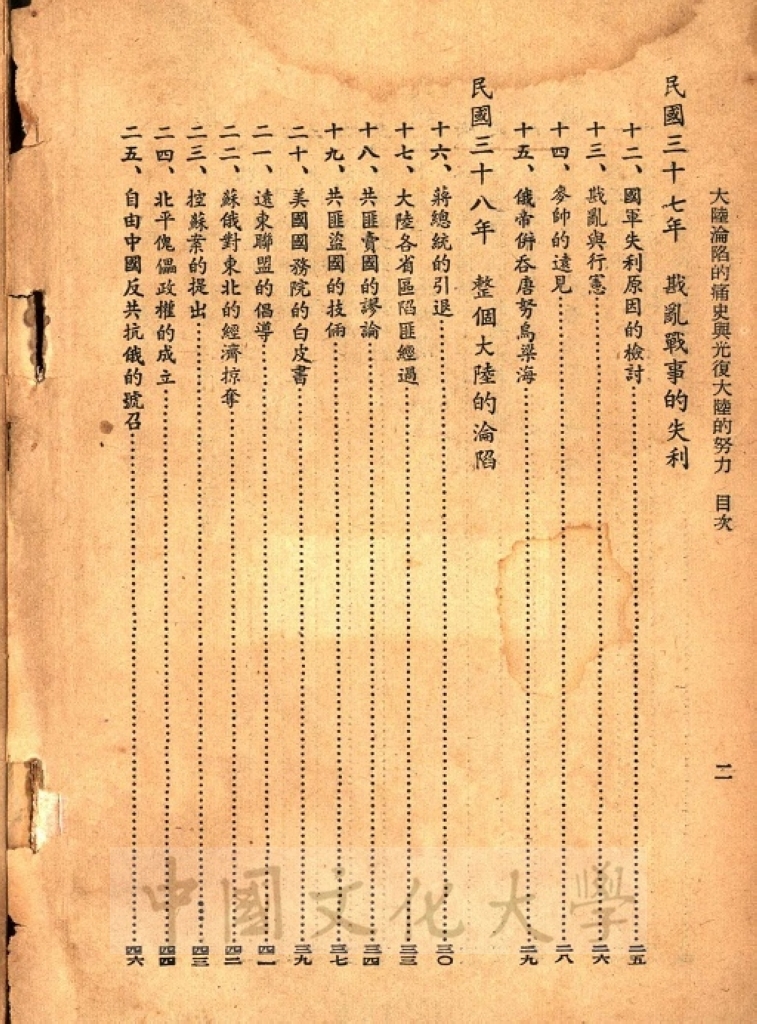 大陸淪陷的痛史與光復大陸的努力 目次 二
民國三十七年 戡亂戰事的失利
十二、國軍失利原因的檢討……二五
十三、戡亂與行憲……二六
十四、麥帥的遠見……二八
十五、俄帝併吞唐努烏梁海……二九
民國三十八年 整個大陸的淪陷
十六、蔣總統的引退……三〇
十七、大陸各省區陷匪經過……三三
十八、共匪賣國的謬論……三四
十九、共匪盜國的技倆……三七
二十、美國國務院的白皮書……三九
二一、遠東聯盟的倡導……四一
二二、蘇俄對東北的經濟掠奪……四二
二三、控蘇案的提出……四三
二四、北平傀儡政權的成立……四四
二五、自由中國反共抗俄的號召……四六
中國文化大學